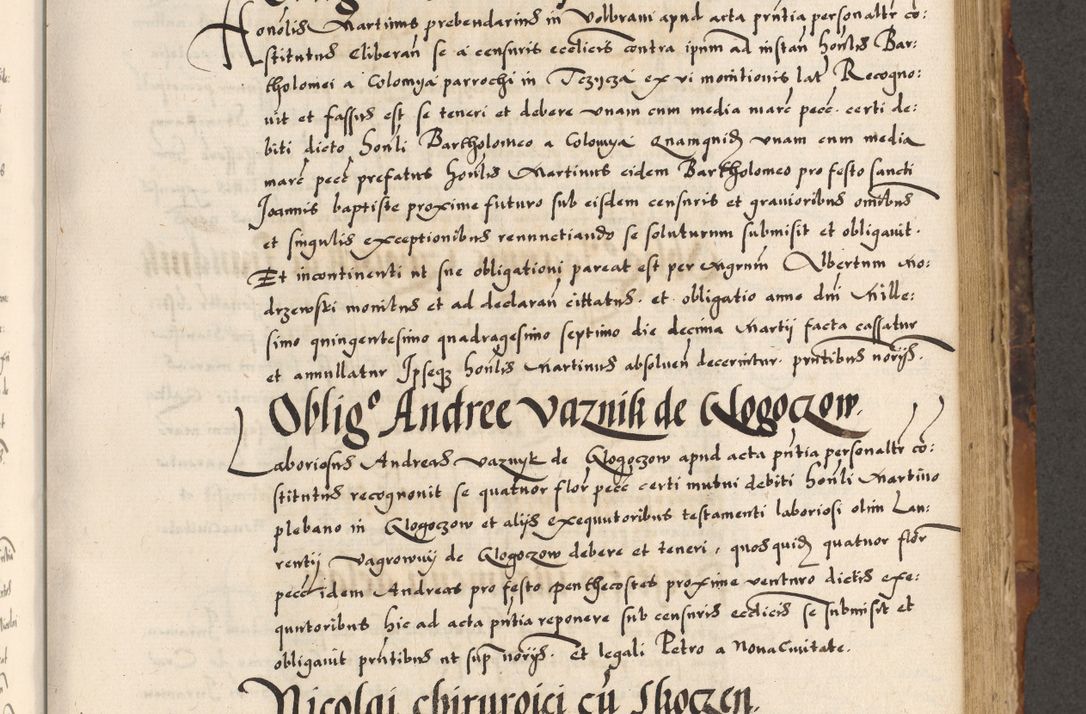 Honołis Martinus prebendarius in Volbram apud acta pñtia personalīr co:
stitutus Eliberań se a censuris eccłicis contra ipsum ad instań hoñlis Bar:
tholomei a Colomya parrochi in Tczycza ex vi monitionis lat Recogno:
uit et fassus est se teneri et debere vnam cum media marc pecc. certi de:
biti dicto hoñli Bartholomeo a Colomya Quamquid vnam cum media
marc pecc prefatus hoñlis Martinus eidem Bartholomeo pro festo sancti
Joannis baptiste proxime futuro sub eisdem censuris et grauioribus omibus
et singulis exceptionibus renunctiando se soluturum submisit et obligauit.
Et incontinenti ut sue obligationi pareat est per Mgrum Albertum Mo:
drzewski monitus et ad declarań cittatus. et obligatio anno dni Mille:
simo quingentesimo quadragesimo septimo die decima Martij facta cassatur
et annullatur Ipseqz hoñlis Martinus absoluen decernitur. pñtibus norijs.
Oblig° Andree Vaznik de Glogoczow.
Laboriosus Andreas Vaznyk de Glogoczow apud acta pñtia personalīr co:
stitutus recognouit se quatuor flor pecc certi mutui debiti hoñli Martino
plebano in Glogoczow et alijs exequutoribus testamenti laboriosi olim Lau:
rentij Vagrowuij de Glogoczow debere et teneri, quosquid quatuor flor
pecc idem Andreas pro festo penthecostes proxime venturo dictis exe:
quutoribus hic ad acta pñtia reponere sub censuris eccłicis se submisit et
obligauit pñtibus ut sup norijs. Et legali Petro a Noua Ciuitate.
Nicolai chirurgici cū Skoczen.